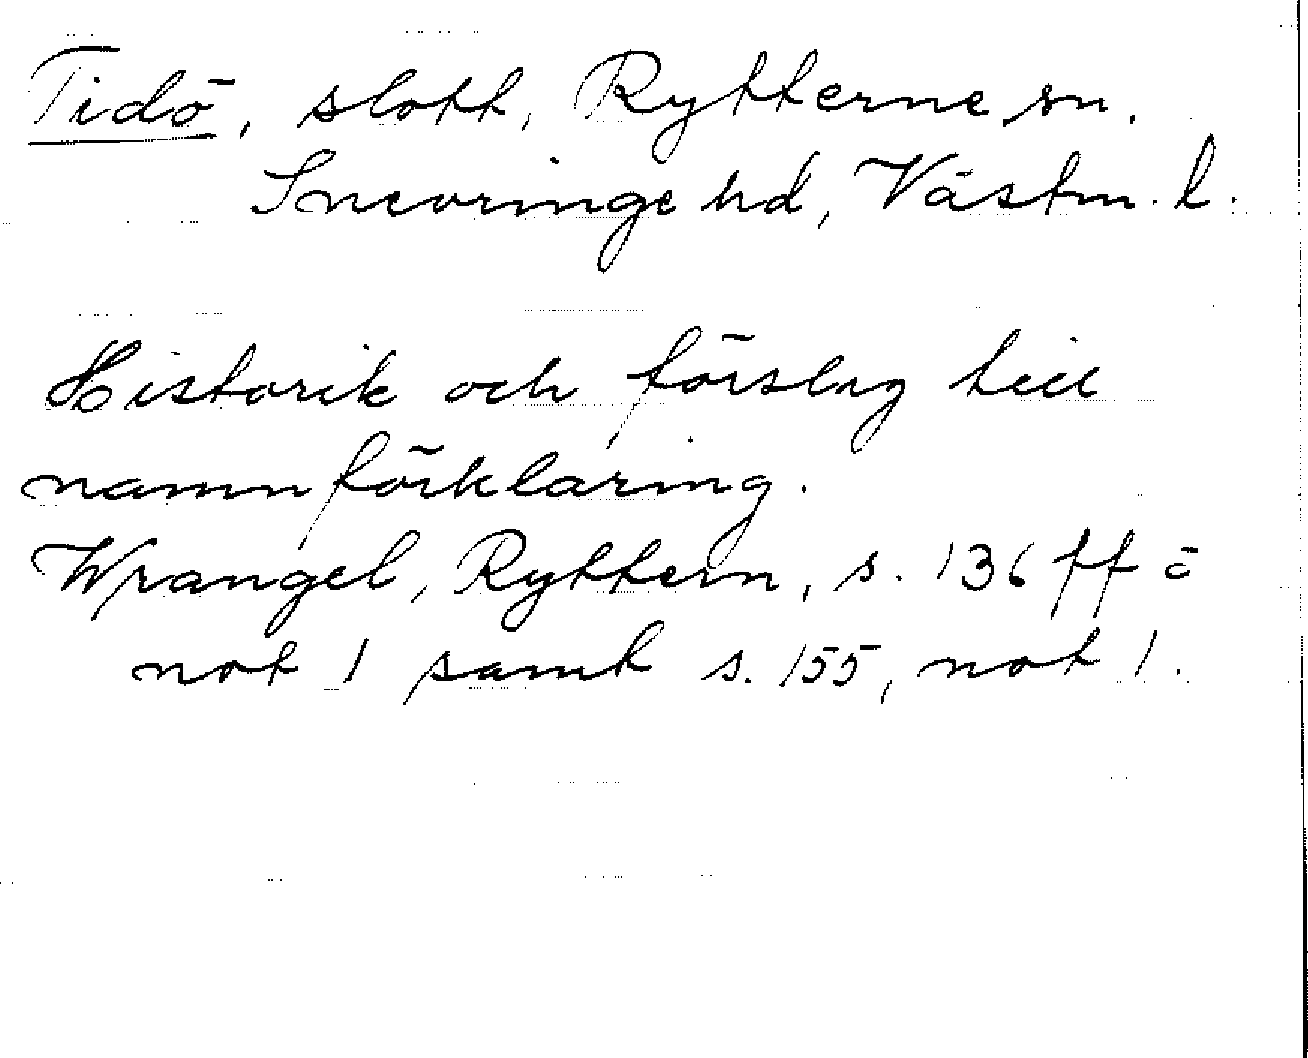 Tidö, slott, Rytterne sn.
Snevringe hd, Västm. l.
Historik och förslag till
namnförklaring.
Wrangel, Ryttern, s. 136 ff o
not 1 samt s. 155, not 1.